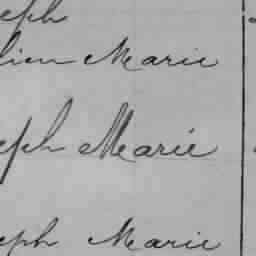 eph
lien Marie
eph Marie
eph Marie